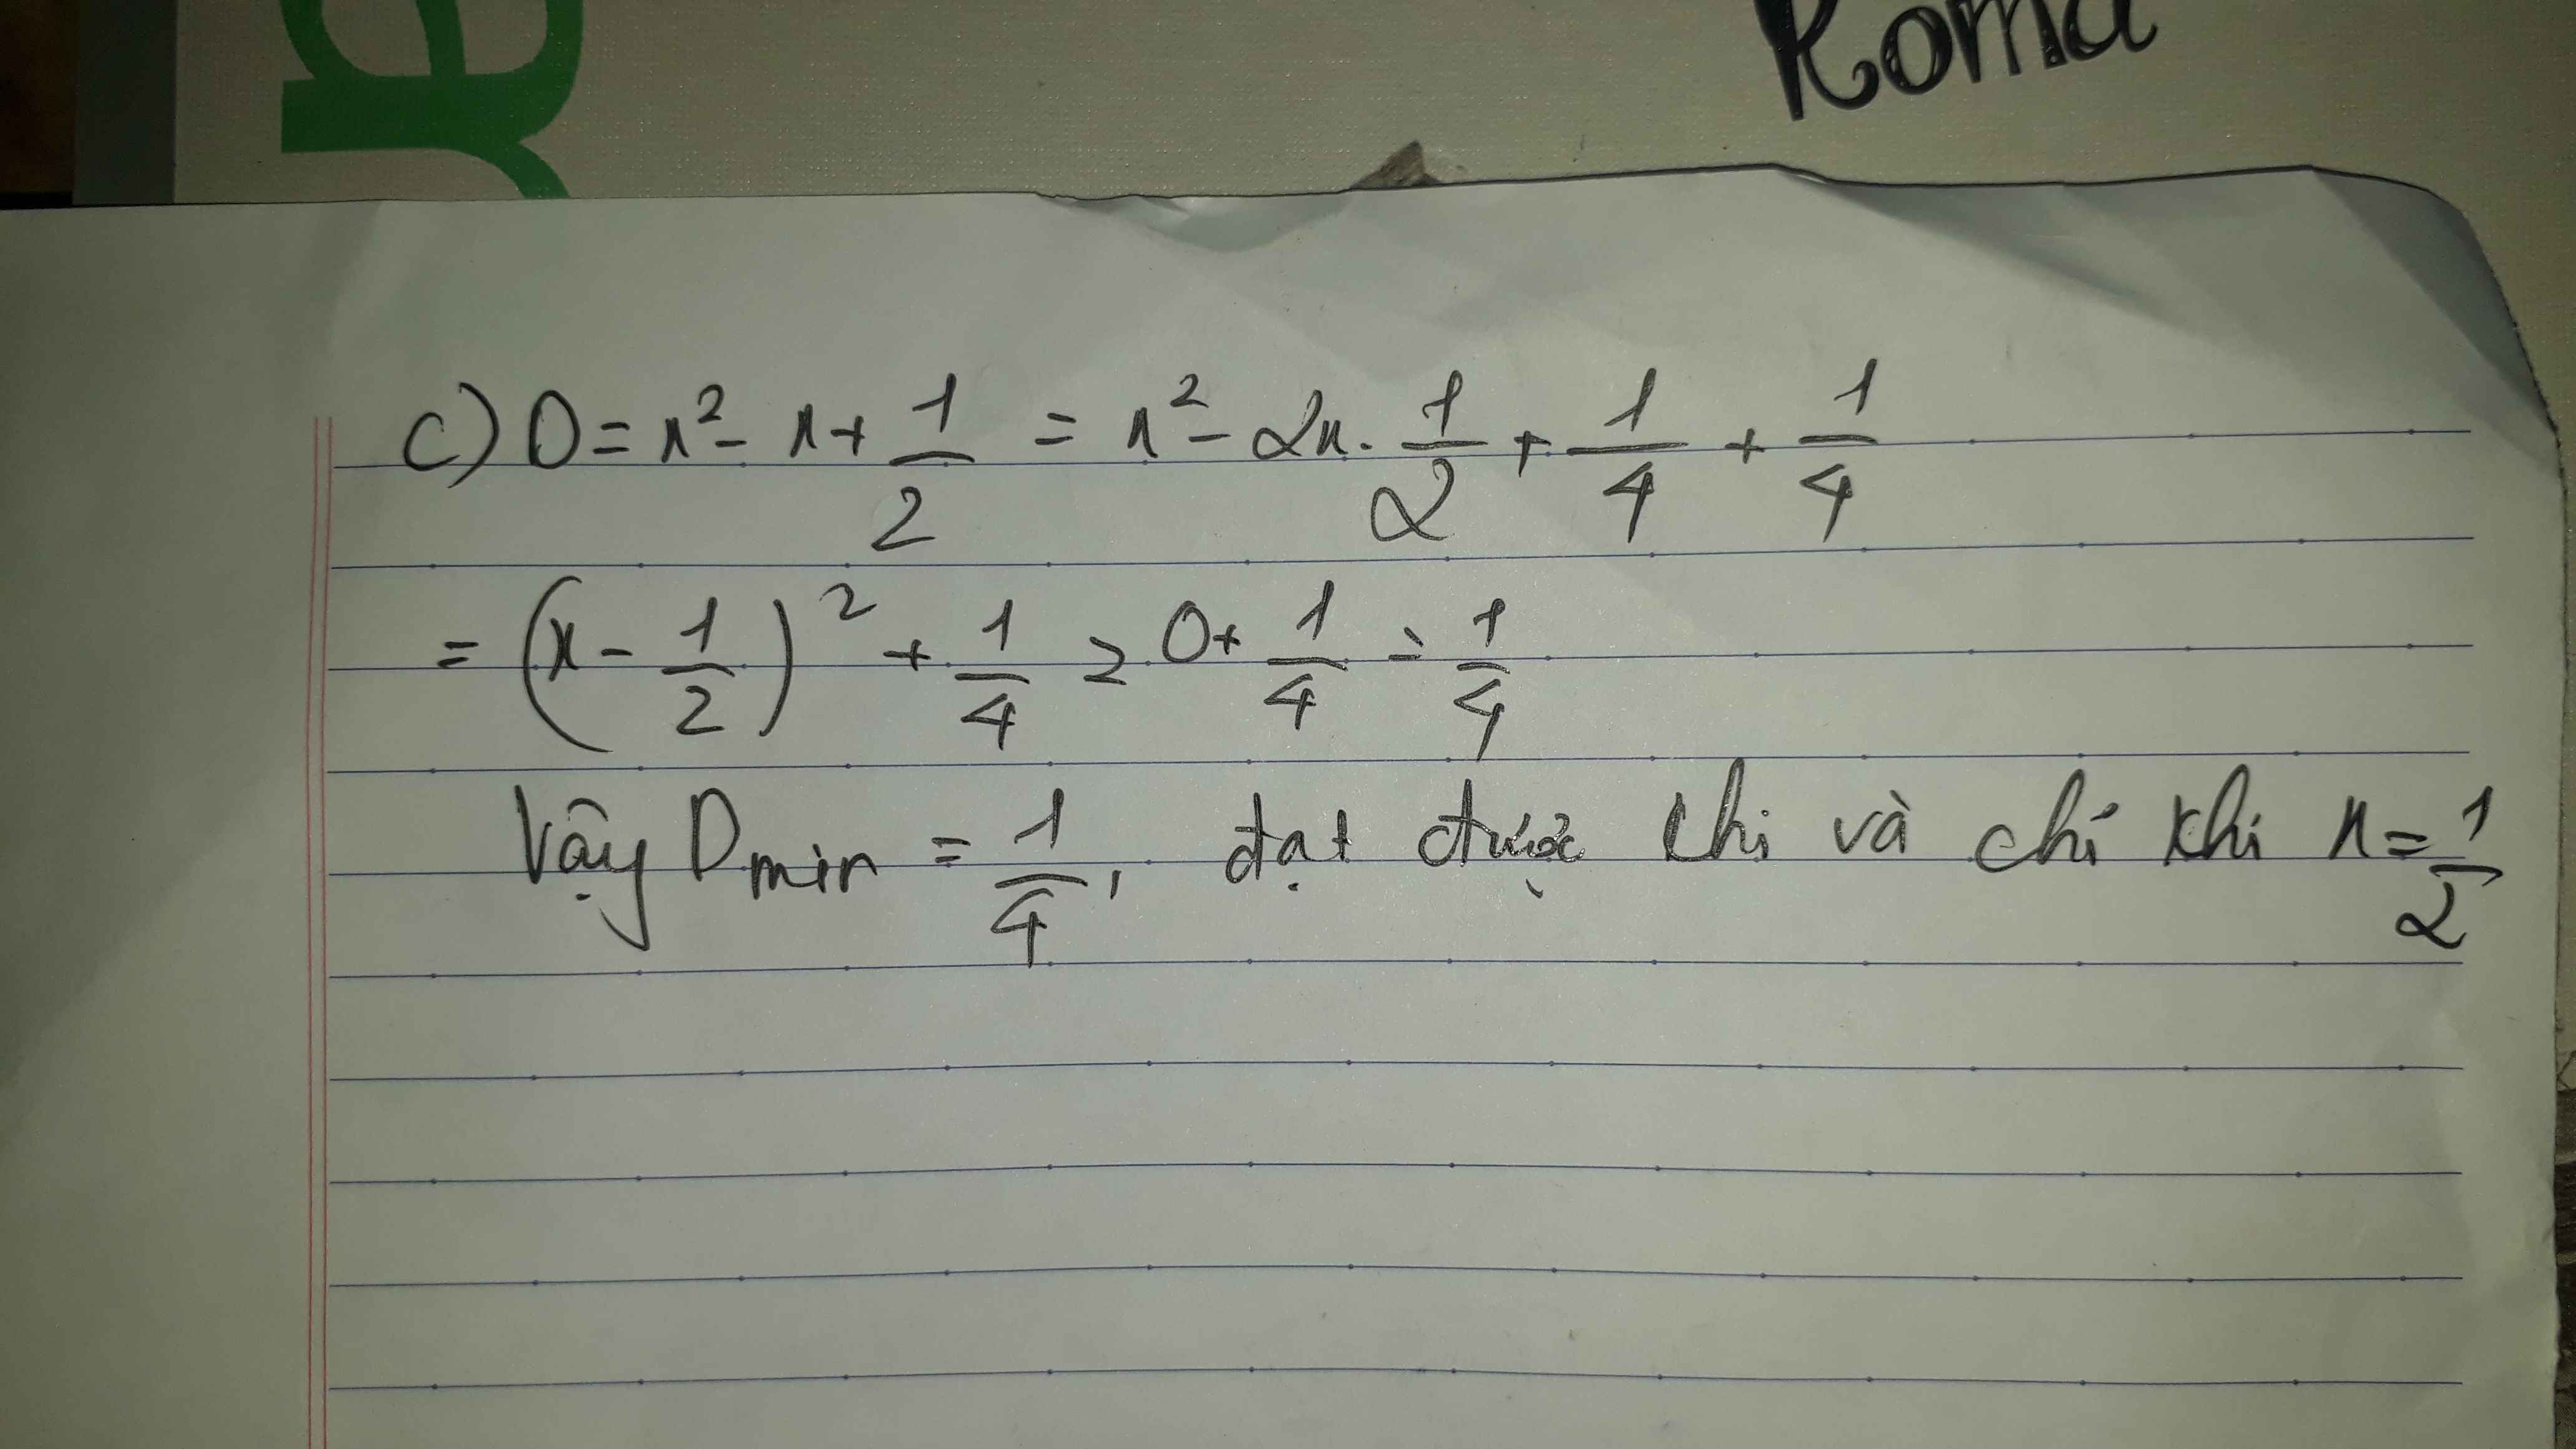 Roma
c) D = x² - x + 1/2 = x² - 2x . 1/2 + 1/4 + 1/4
= (x - 1/2)² + 1/4 ≥ 0 + 1/4 = 1/4
Vậy Dmin = 1/4, đạt được khi và chỉ khi x = 1/2